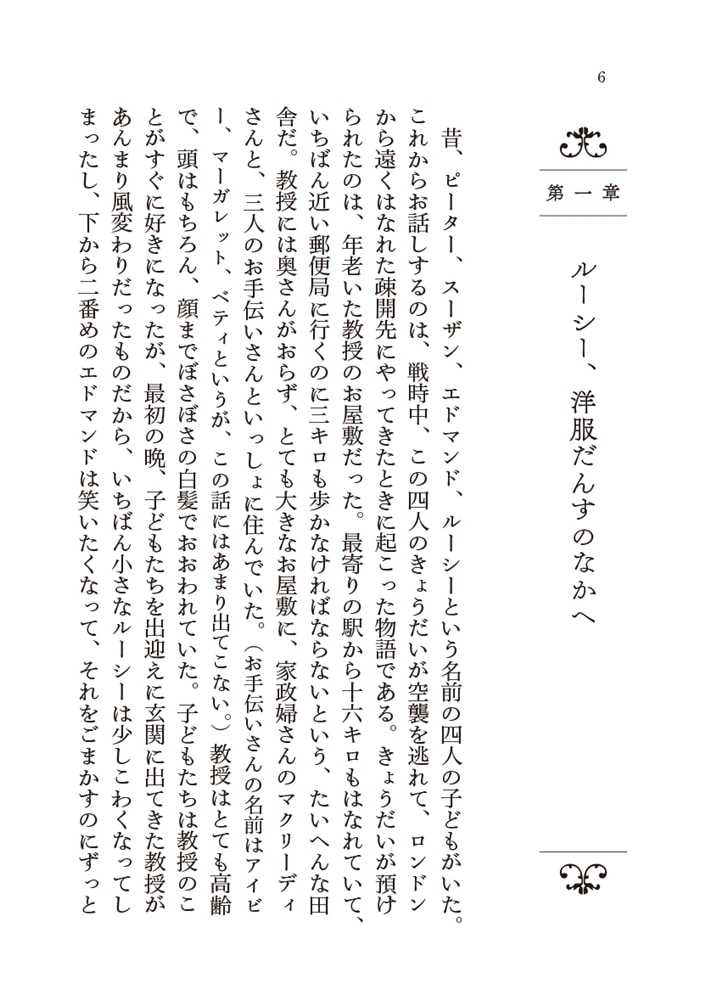 6
第一章
ルーシー、洋服だんすのなかへ
昔、ピーター、スーザン、エドマンド、ルーシーという名前の四人の子どもがいた。
これからお話しするのは、戦時中、この四人のきょうだいが空襲を逃れて、ロンドン
から遠くはなれた疎開先にやってきたときに起こった物語である。きょうだいが預け
られたのは、年老いた教授のお屋敷だった。最寄りの駅から十六キロもはなれていて、
いちばん近い郵便局に行くのに三キロも歩かなければならないという、たいへんな田
舎だ。教授には奥さんがおらず、とても大きなお屋敷に、家政婦さんのマクリーディ
さんと、三人のお手伝いさんといっしょに住んでいた。（お手伝いさんの名前はアイビ
ー、マーガレット、ベティというが、この話にはあまり出てこない。）教授はとても高齢
で、頭はもちろん、顔までぼさぼさの白髪でおおわれていた。子どもたちは教授のこ
とがすぐに好きになったが、最初の晩、子どもたちを出迎えに玄関に出てきた教授が
あんまり風変わりだったものだから、いちばん小さなルーシーは少しこわくなってし
まったし、下から二番めのエドマンドは笑いたくなって、それをごまかすのにずっと